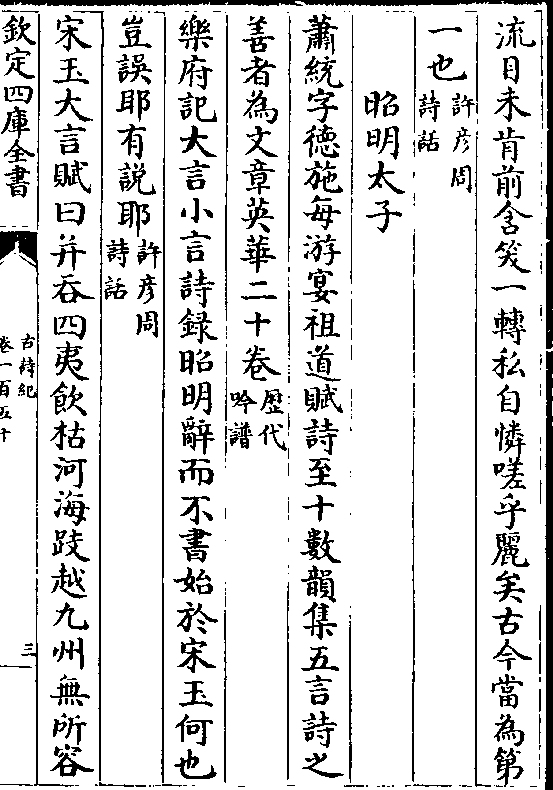 流目未肯前含笑一轉私自憐嗟乎麗矣古今當為第
一也許彥周詩話
昭明太子
蕭統字德施每游宴祖道賦詩至十數韻集五言詩之
善者為文章英華二十卷歴代吟譜
樂府記大言小言詩録昭明辭而不書始於宋玉何也
豈誤耶有説耶許彥周詩話
宋玉大言賦曰并吞四夷飲枯河海跂越九州無所容
欽定四庫全書
古詩紀
卷一百五十
三